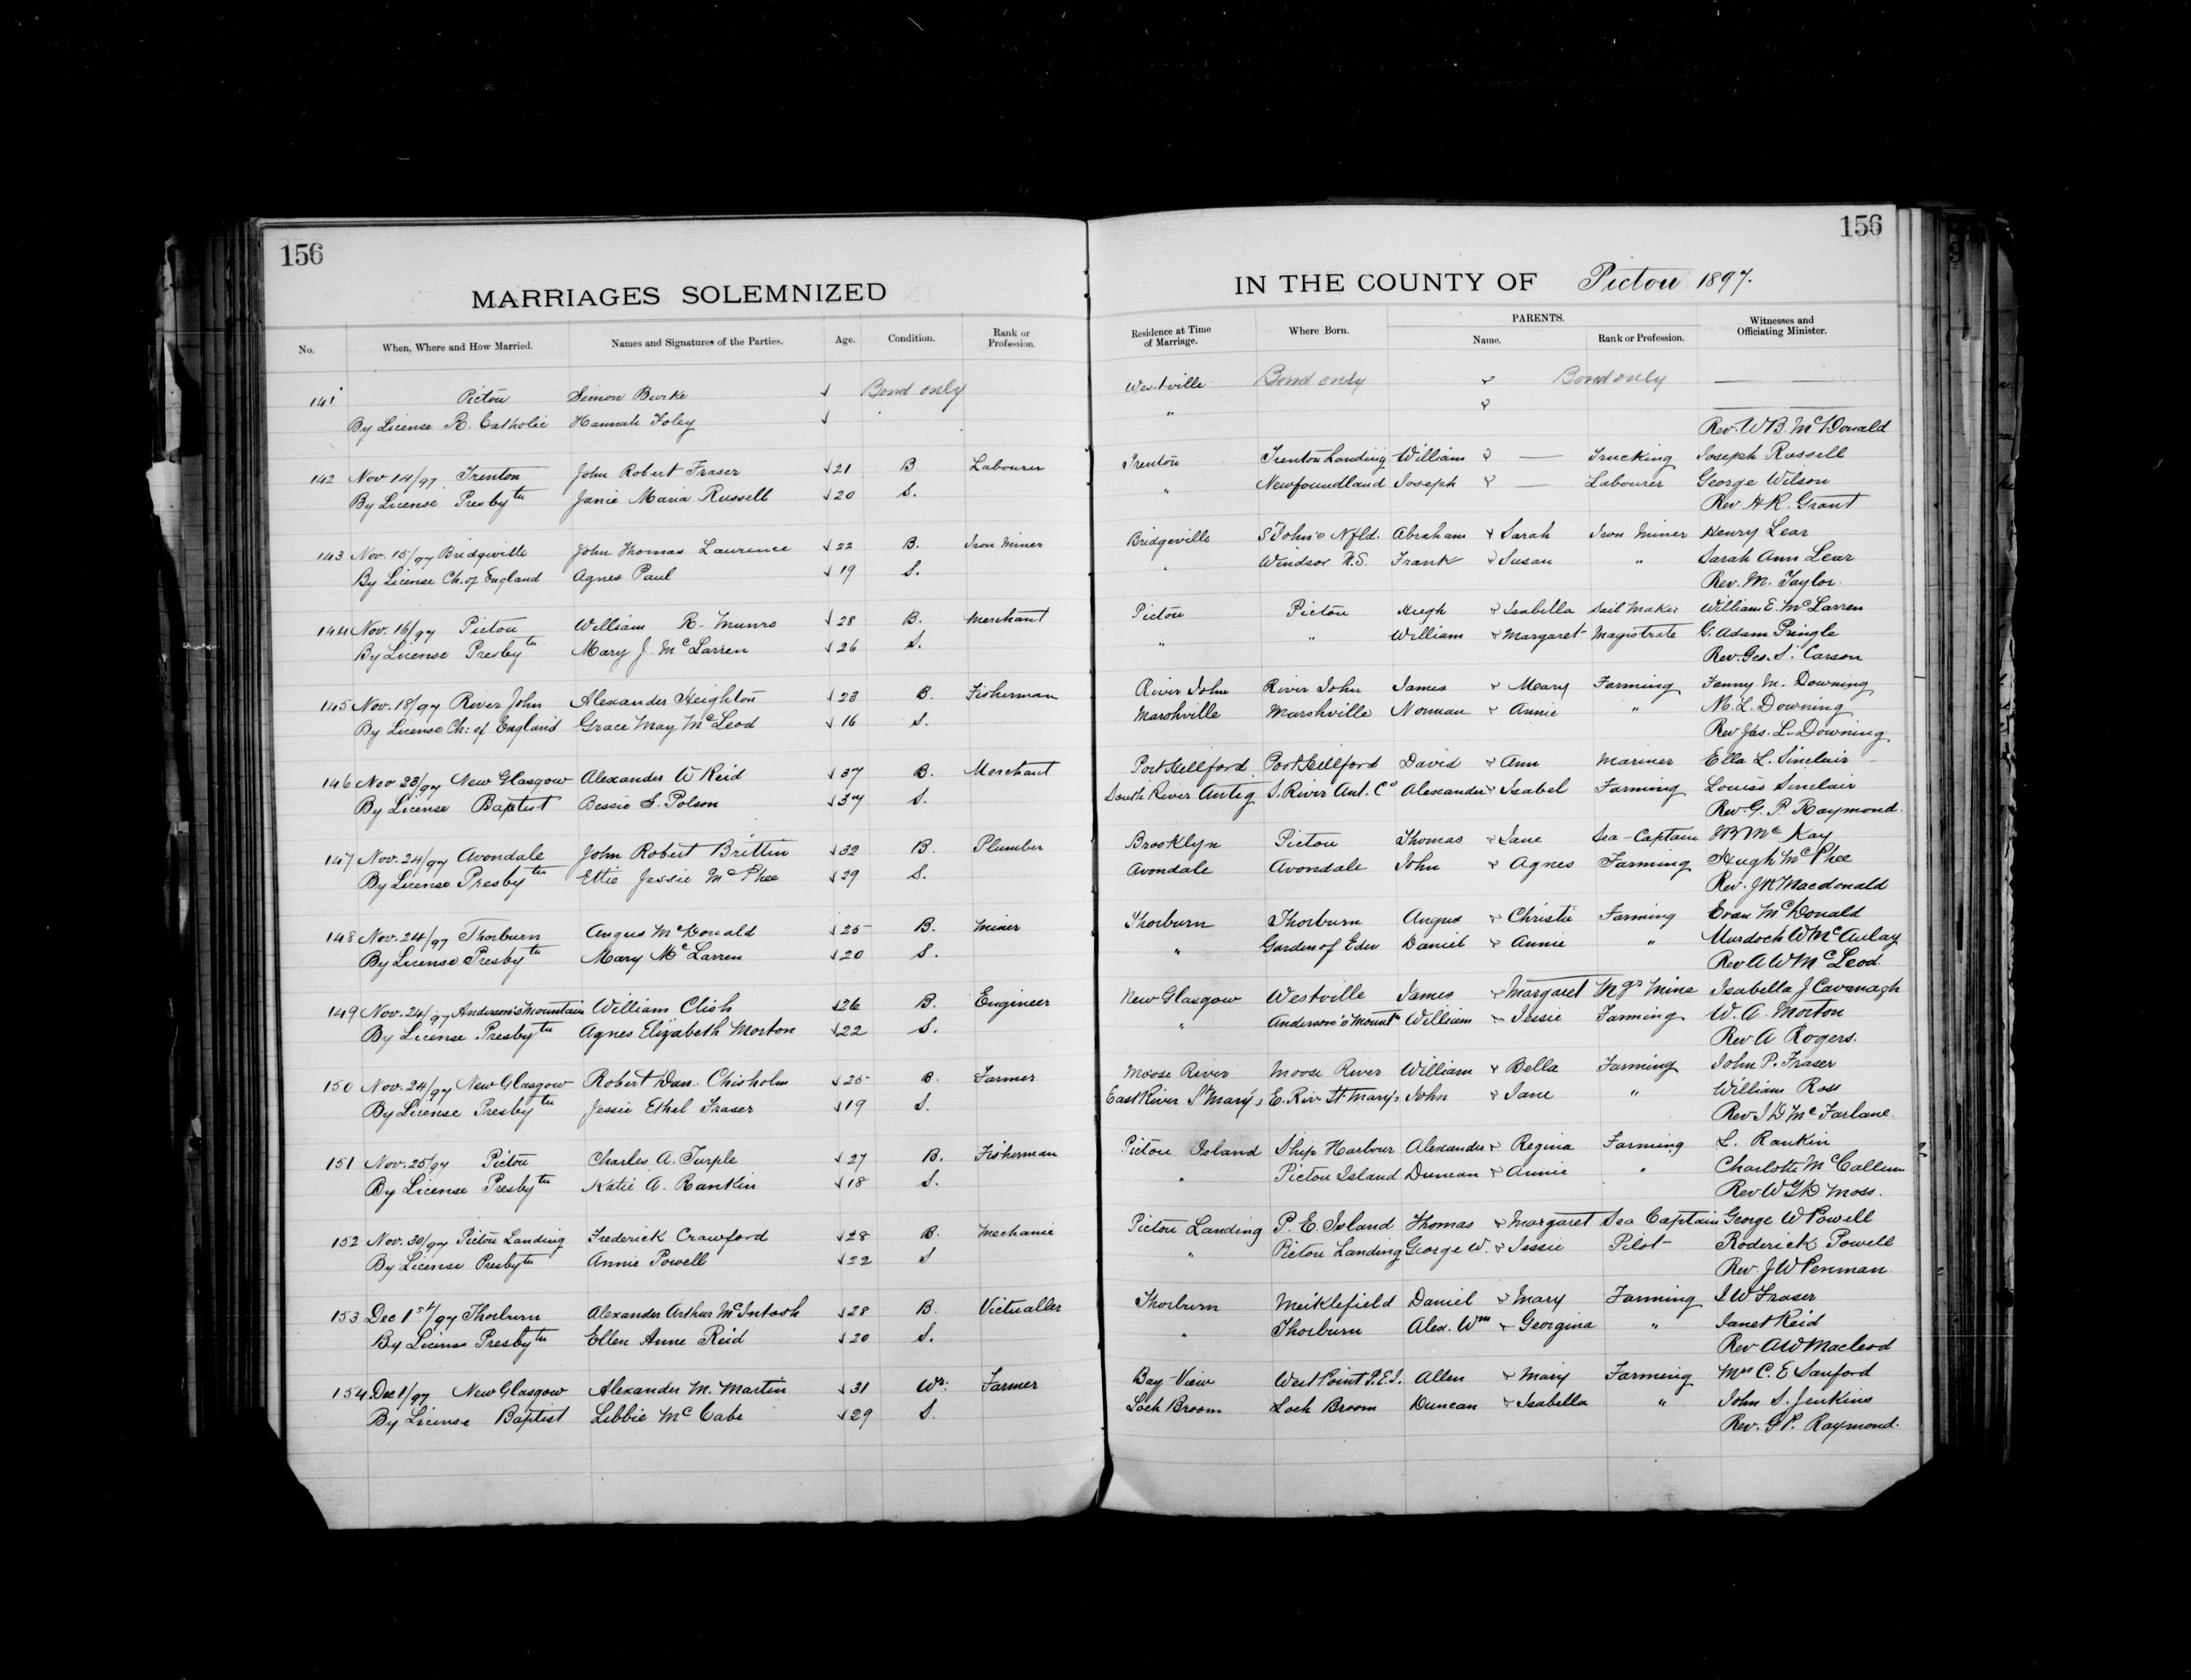 156
MARRIAGES SOLEMNIZED
No. When, Where and How Married. Names and Signatures of the Parties. Age. Condition. Rank or Profession.
141 Pictou Simon Burke Bond only
By License R. Catholic Hannah Foley
142 Nov 14/97 Trenton John Robert Fraser 21 B. Labourer
By License Presbytn Janie Maria Russell 20 S.
143 Nov. 15/97 Bridgeville John Thomas Laurence 22 B. Iron Miner
By License Ch. of England Agnes Paul 19 S.
144 Nov. 16/97 Pictou William R. Munro 28 B. Merchant
By License Presbytn Mary J. McLarren 26 S.
145 Nov. 18/97 River John Alexander Heighton 23 B. Fisherman
By License Ch: of England Grace May McLeod 16 S.
146 Nov 23/97 New Glasgow Alexander W Reid 37 B. Merchant
By License Baptist Bessie S. Polson 37 S.
147 Nov. 24/97 Avondale John Robert Brittin 32 B. Plumber
By License Presbytn Ettie Jessie McPhee 29 S.
148 Nov. 24/97 Thorburn Angus McDonald 25 B. Miner
By License Presbytn Mary McLarren 20 S.
149 Nov. 24/97 Anderson's Mountain William Clish 26 B. Engineer
By License Presbytn Agnes Elizabeth Morton 22 S.
150 Nov. 24/97 New Glasgow Robert Dan. Chisholm 25 B. Farmer
By License Presbytn Jessie Ethel Fraser 19 S.
151 Nov. 25/97 Pictou Charles A. Turple 27 B. Fisherman
By License Presbytn Katie A. Rankin 18 S.
152 Nov. 30/97 Pictou Landing Frederick Crawford 28 B. Mechanic
By License Presbytn Annie Powell 22 S
153 Dec 1st/97 Thorburn Alexander Arthur McIntosh 28 B. Victualler
By License Presbytn Ellen Anne Reid 20 S.
154 Dec 1/97 New Glasgow Alexander M. Martin 31 Wr: Farmer
By License Baptist Libbie McCabe 29 S.
156
IN THE COUNTY OF Pictou 1897.
Residence at Time of Marriage. Where Born. PARENTS. Name. Rank or Profession. Witnesses and Officiating Minister.
Westville Bond only & Bond only
" &
Rev. W B. McDonald
Trenton Trenton Landing William & — Trucking Joseph Russell
" Newfoundland Joseph & — Labourer George Wilson
Rev A R. Grant
Bridgeville St John's Nfld. Abraham & Sarah Iron Miner Henry Lear
" Windsor N.S. Frank & Susan " Sarah Ann Lear
Rev. M. Taylor.
Pictou Pictou Hugh & Isabella Sail Maker William E. McLarren
" " William & Margaret Magistrate G. Adam Pringle
Rev. Geo. S. Carson
River John River John James & Mary Farming Fanny M. Downing
Marshville Marshville Norman & Annie " M. L. Downing
Rev Jas. L. Downing
Port Hillford Port Hillford David & Ann Mariner Ella L. Sinclair
South River Antig S. River Ant. Co Alexander & Isabel Farming Louise Sinclair
Rev. G. P. Raymond.
Brooklyn Pictou Thomas & Jane Sea-Captain McKay
Avondale Avondale John & Agnes Farming Hugh McPhee
Rev. J R Macdonald
Thorburn Thorburn Angus & Christie Farming Evan McDonald
" Garden of Eden Daniel & Annie " Murdoch W McAulay
Rev A W McLeod.
New Glasgow Westville James & Margaret Mgr Mine Isabella J Cavanagh
" Anderson's Mountn William & Jessie Farming W. A. Morton
Rev. A Rogers.
Moose River Moose River William & Bella Farming John P. Fraser
East River St Mary's E. Riv St Mary's John & Jane " William Ross
Rev. J D McFarlane.
Pictou Island Ship Harbour Alexander & Regina Farming L. Rankin
" Pictou Island Duncan & Annie " Charlotte McCallum
Rev W Moss.
Pictou Landing P. E. Island Thomas & Margaret Sea Captain George W Powell
" Pictou Landing George W. & Jessie Pilot Roderick Powell
Rev. J W Penman.
Thorburn Meiklefield Daniel & Mary Farming J W Fraser
" Thorburn Alex. Wm & Georgina " Janet Reid
Rev A W Macleod
Bay View West Point P.E.I. Allen & Mary Farming Mrs C. E Sanford
Loch Broom Loch Broom Duncan & Isabella " John S. Jenkins
Rev. G P. Raymond.